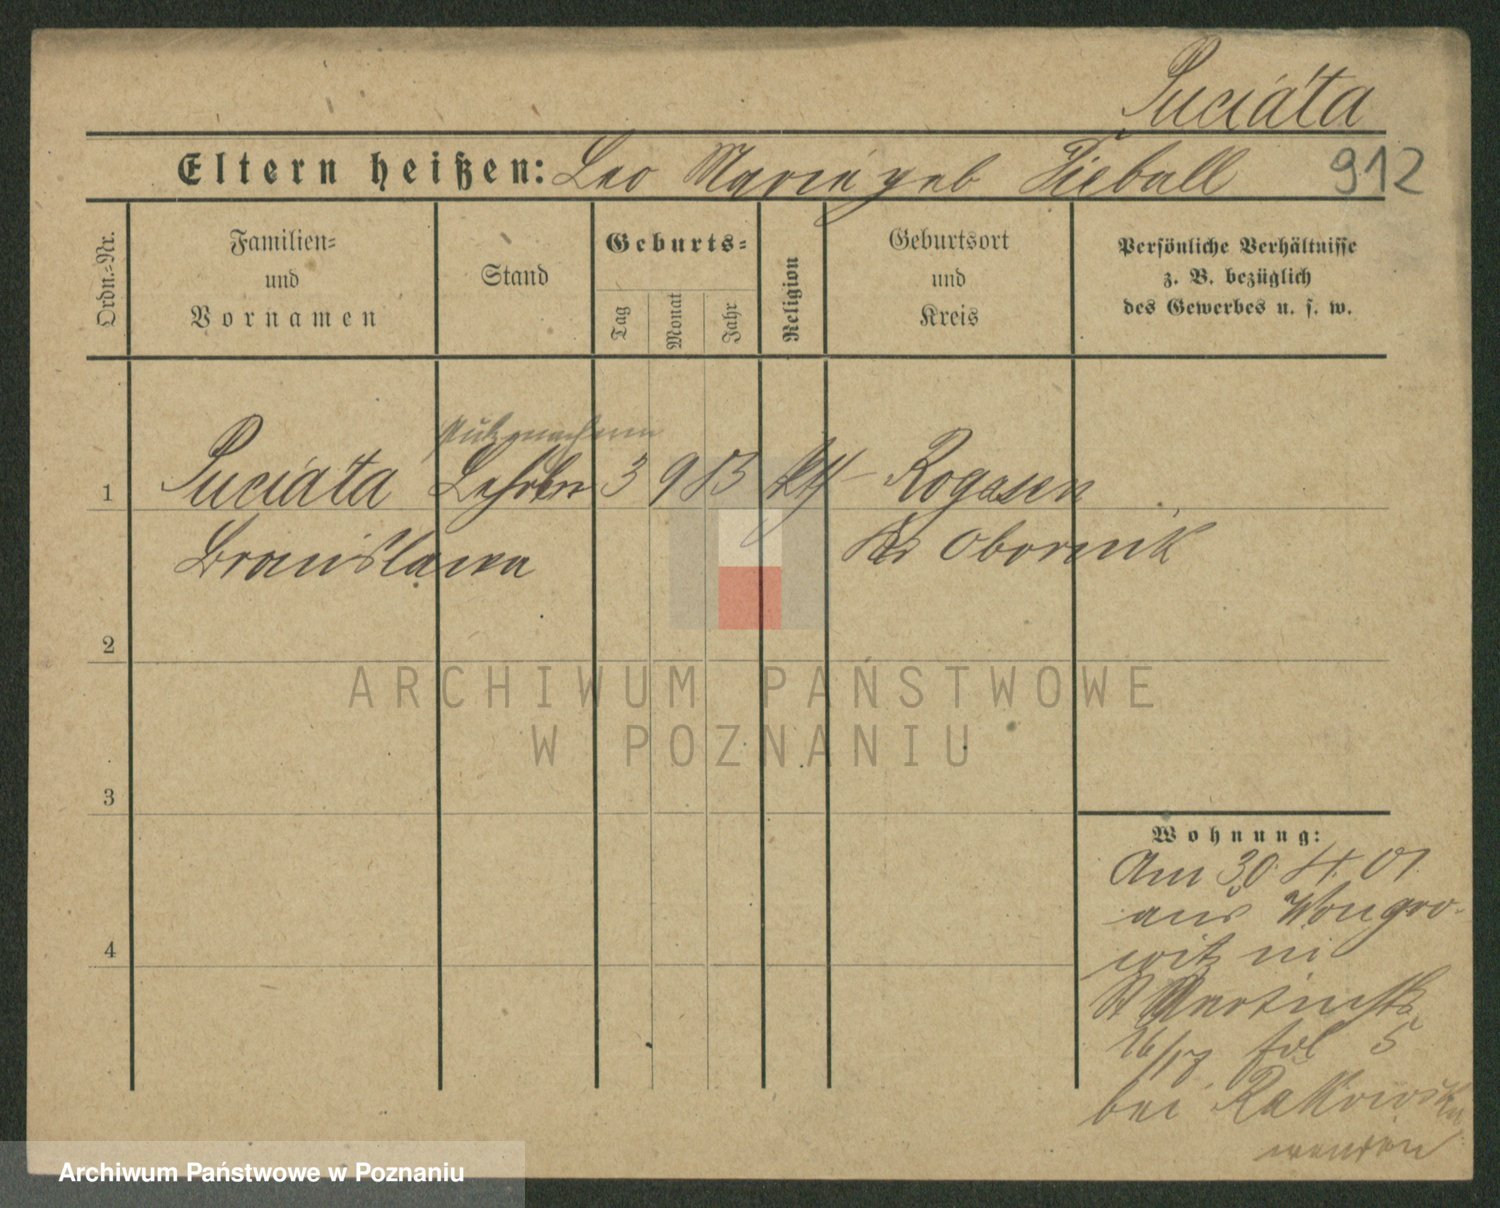 Puciáta
Eltern heißen: Leo Marie geb Tieball
912
Ordn.=Nr.
Familien=
und
Vornamen
Stand
Geburts=
Tag
Monat
Jahr
Religion
Geburtsort
und
Kreis
Persönliche Verhältnisse
z. B. bezüglich
des Gewerbes u. s. w.
Putzmacherin
1 Puciáta 3 9 83 kth Rogasen
Bronislawa Krs Obornik
2
3
4
Wohnung:
Am 30. 4. 01.
aus Wongro-
witz in
St Martinstr
16/17 fol 5
bei Rakowski
ARCHIWUM PAŃSTWOWE
W POZNANIU
Archiwum Państwowe w Poznaniu